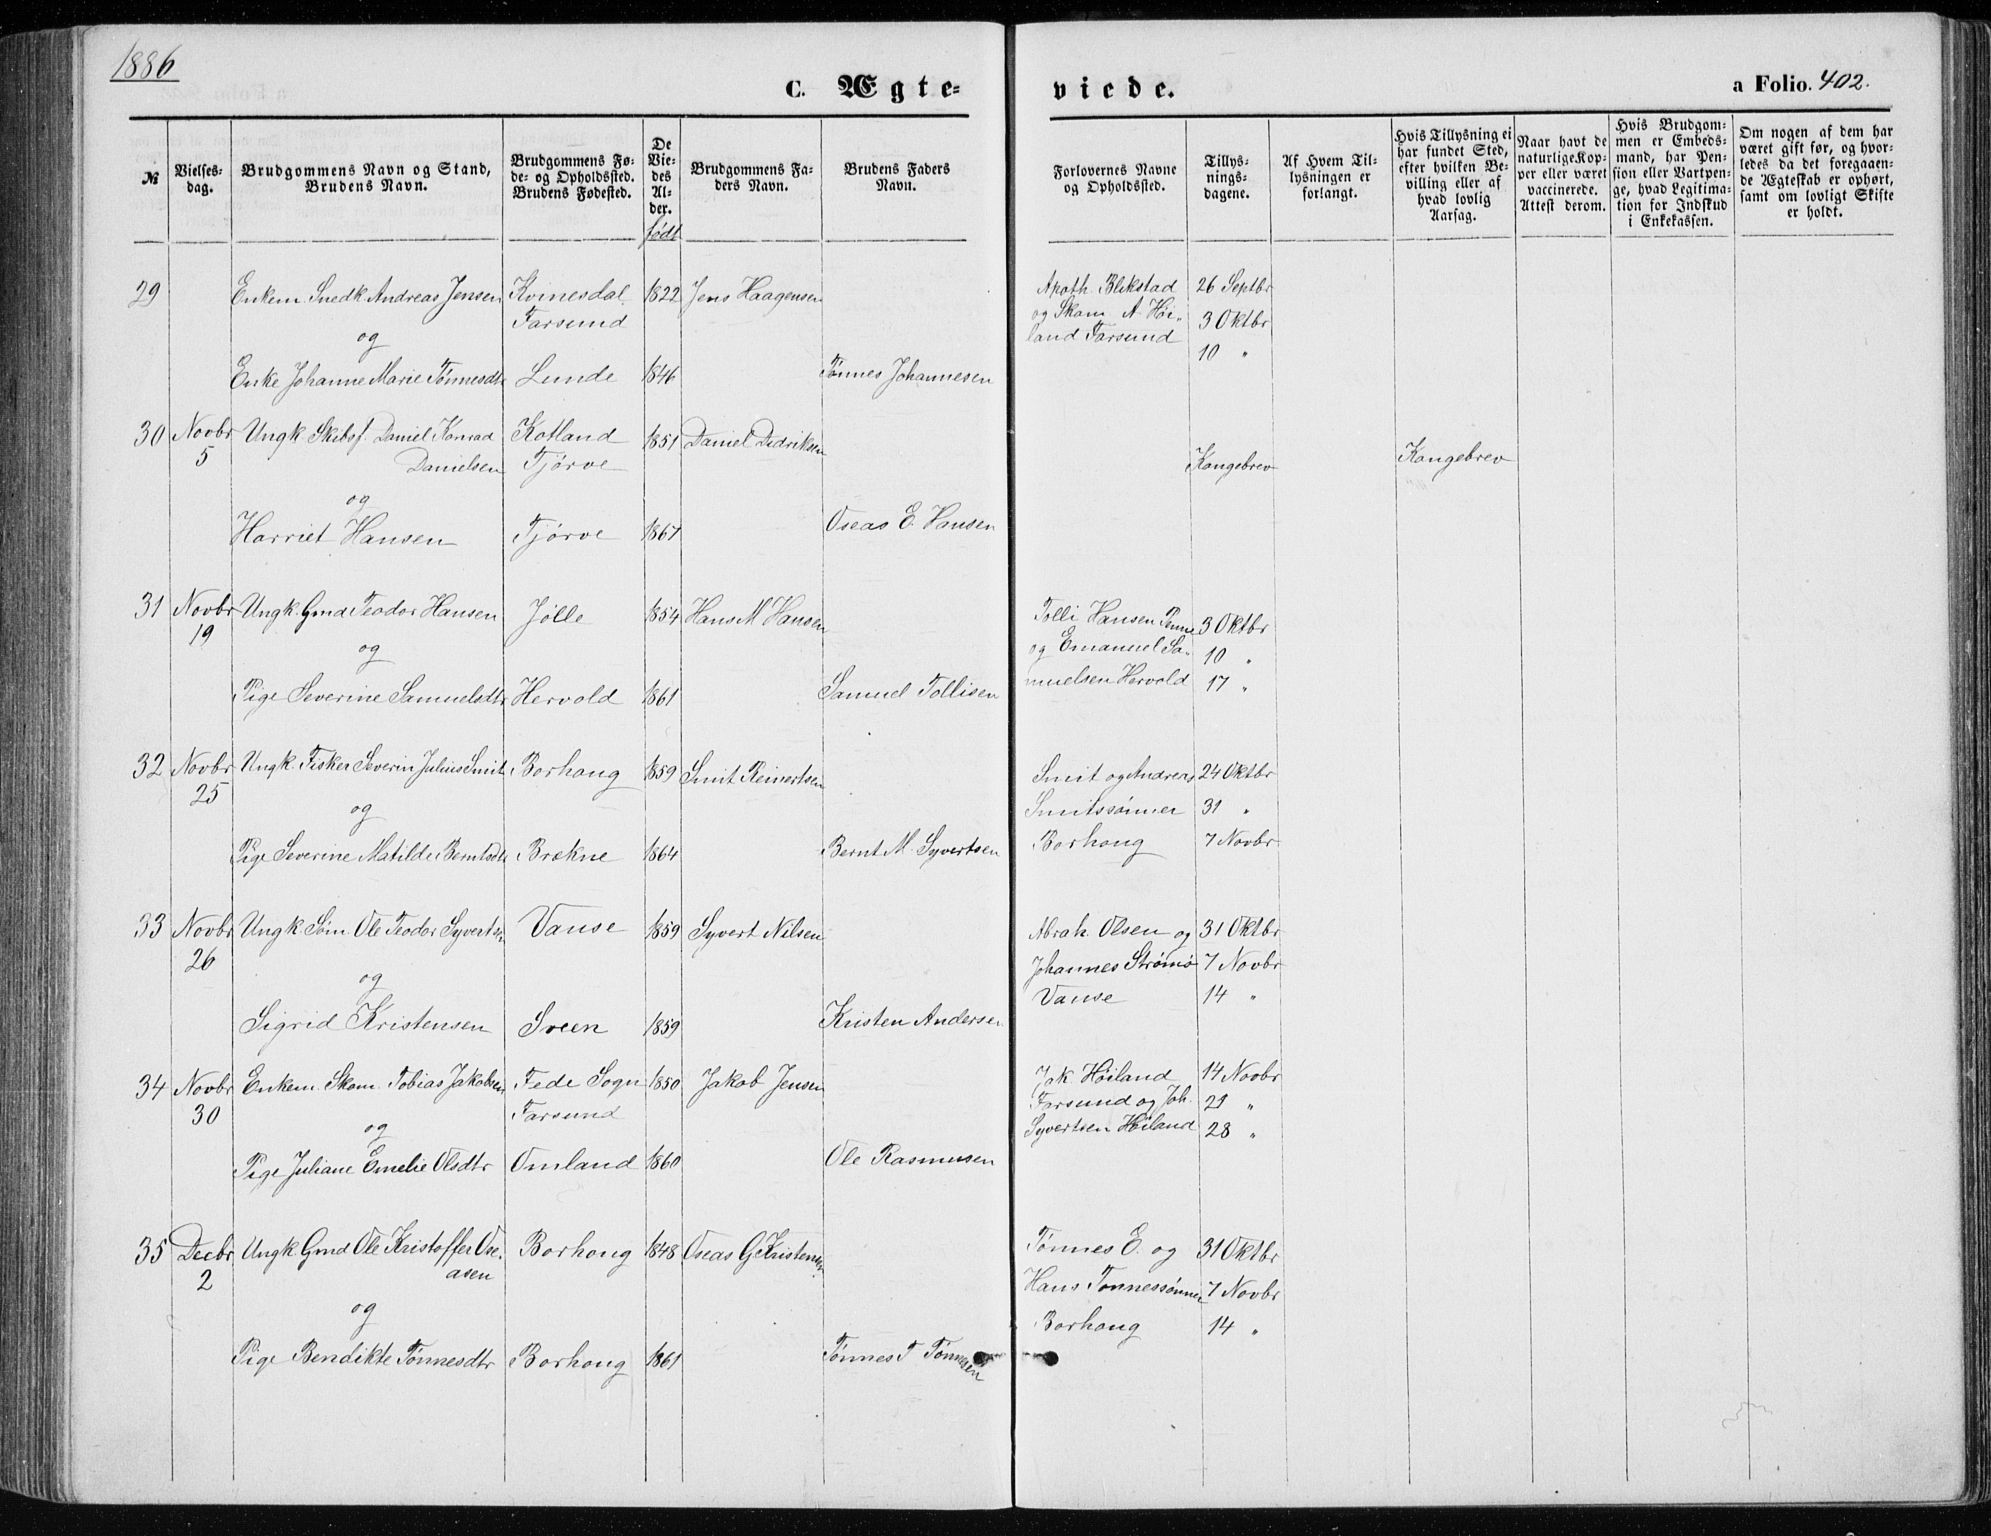 1886
C. Ægte-
viede.
a Folio. 402.
№
Vielses-
dag.
Brudgommens Navn og Stand,
Brudens Navn.
Brudgommens Fø-
de- og Opholdssted.
Brudens Fødested.
De
Vie-
des
Al-
der.
født
Brudgommens Fa-
ders Navn.
Brudens Faders
Navn.
Forlovernes Navne
og Opholdssted.
Tillys-
nings-
dagene.
Af Hvem Til-
lysningen er
forlangt.
Hvis Tillysning ei
har fundet Sted,
efter hvilken Be-
villing eller af
hvad lovlig
Aarsag.
Naar havt de
naturlige Kop-
per eller været
vaccinerede.
Attest derom.
Hvis Brudgom-
men er Embeds-
mand, har Pen-
sion eller Vartpen-
ge, hvad Legitima-
tion for Indskud
i Enkekassen.
Om nogen af dem har
været gift før, og hvor-
ledes da det foregaaen-
de Ægteskab er ophørt,
samt om lovligt Skifte
er holdt.
29 Enkem. Snedk Andreas Jensen Kvinesdal. 1822 Jens Haagensen Apoth. Blikstad 26 Septbr
Farsund og Skom A. Høi- 3 Oktbr
og land Farsund 10 "
Enke Johanne Marie Tønnesdtr Lunde 1846 Tønnes Johannesen
30 Novbr Ungk Skibsf. Daniel Konrad Kotland 1851 Daniel Didriksen
5 Danielsen Tjørve Kongebrev Kongebrev
og
Harriet Hansen Tjørve 1867 Oseas E. Hansen
31 Novbr Ungk. Gmd Teodor Hansen Jølle 1854 Hans M Hansen Tolli Hansen Penne 3 Oktbr
19 og og Emanuel Sa- 10 "
Pige Severine Samuelsdtr Hervold 1861 Samuel Tollisen muelsen Hervold 17 "
32 Novbr Ungk. Fisker Severin Julius Smit Borhoug 1859 Smit Reinertsen Smit og Andreas 24 Oktbr
25 og Smitssønner 31 "
Pige Severine Matilde Berntsdtr Brekne 1864 Bernt M. Syvertsen Borhoug 7 Novbr
33 Novbr Ungk. Søm. Ole Teodor Syvertsen Vanse 1859 Syvert Nilsen Abrah. Olsen og 31 Oktbr
26 og Johannes Strømø 7 Novbr
Vanse 14 "
Sigrid Kristensen Sveen 1859 Kristen Andersen
34 Novbr Enkem. Skom. Tobias Jakobsen Fede Sogn 1850 Jakob Jensen Jak Høiland 14 Novbr
30 Farsund Farsund og Joh. 21 "
og Syvertsen Høiland 28 "
Pige Juliane Emelie Olsdtr Omland 1860 Ole Rasmusen
35 Decbr Ungk Gmd Ole Kristoffer Ose- Borhoug 1848 Oseas G Kristensen Tønnes E. og 31 Oktbr
2 asen Hans Tønnessønner 7 Novbr
og Borhoug 14 "
Pige Bendikte Tønnesdtr Borhoug 1861 Tønnes T Tønnesen